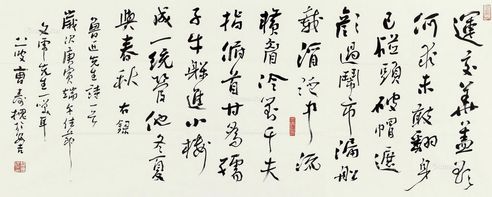 運交華蓋欲
何求未敢翻身
已碰頭破帽遮
顏過鬧市漏船
載酒泛中流
橫眉冷對千夫
指俯首甘為孺
子牛躲進小樓
成一統管他冬夏
與春秋 右錄
魯迅先生詩一首
歲次庚寅端午佳節
先生一笑
曹壽槐於